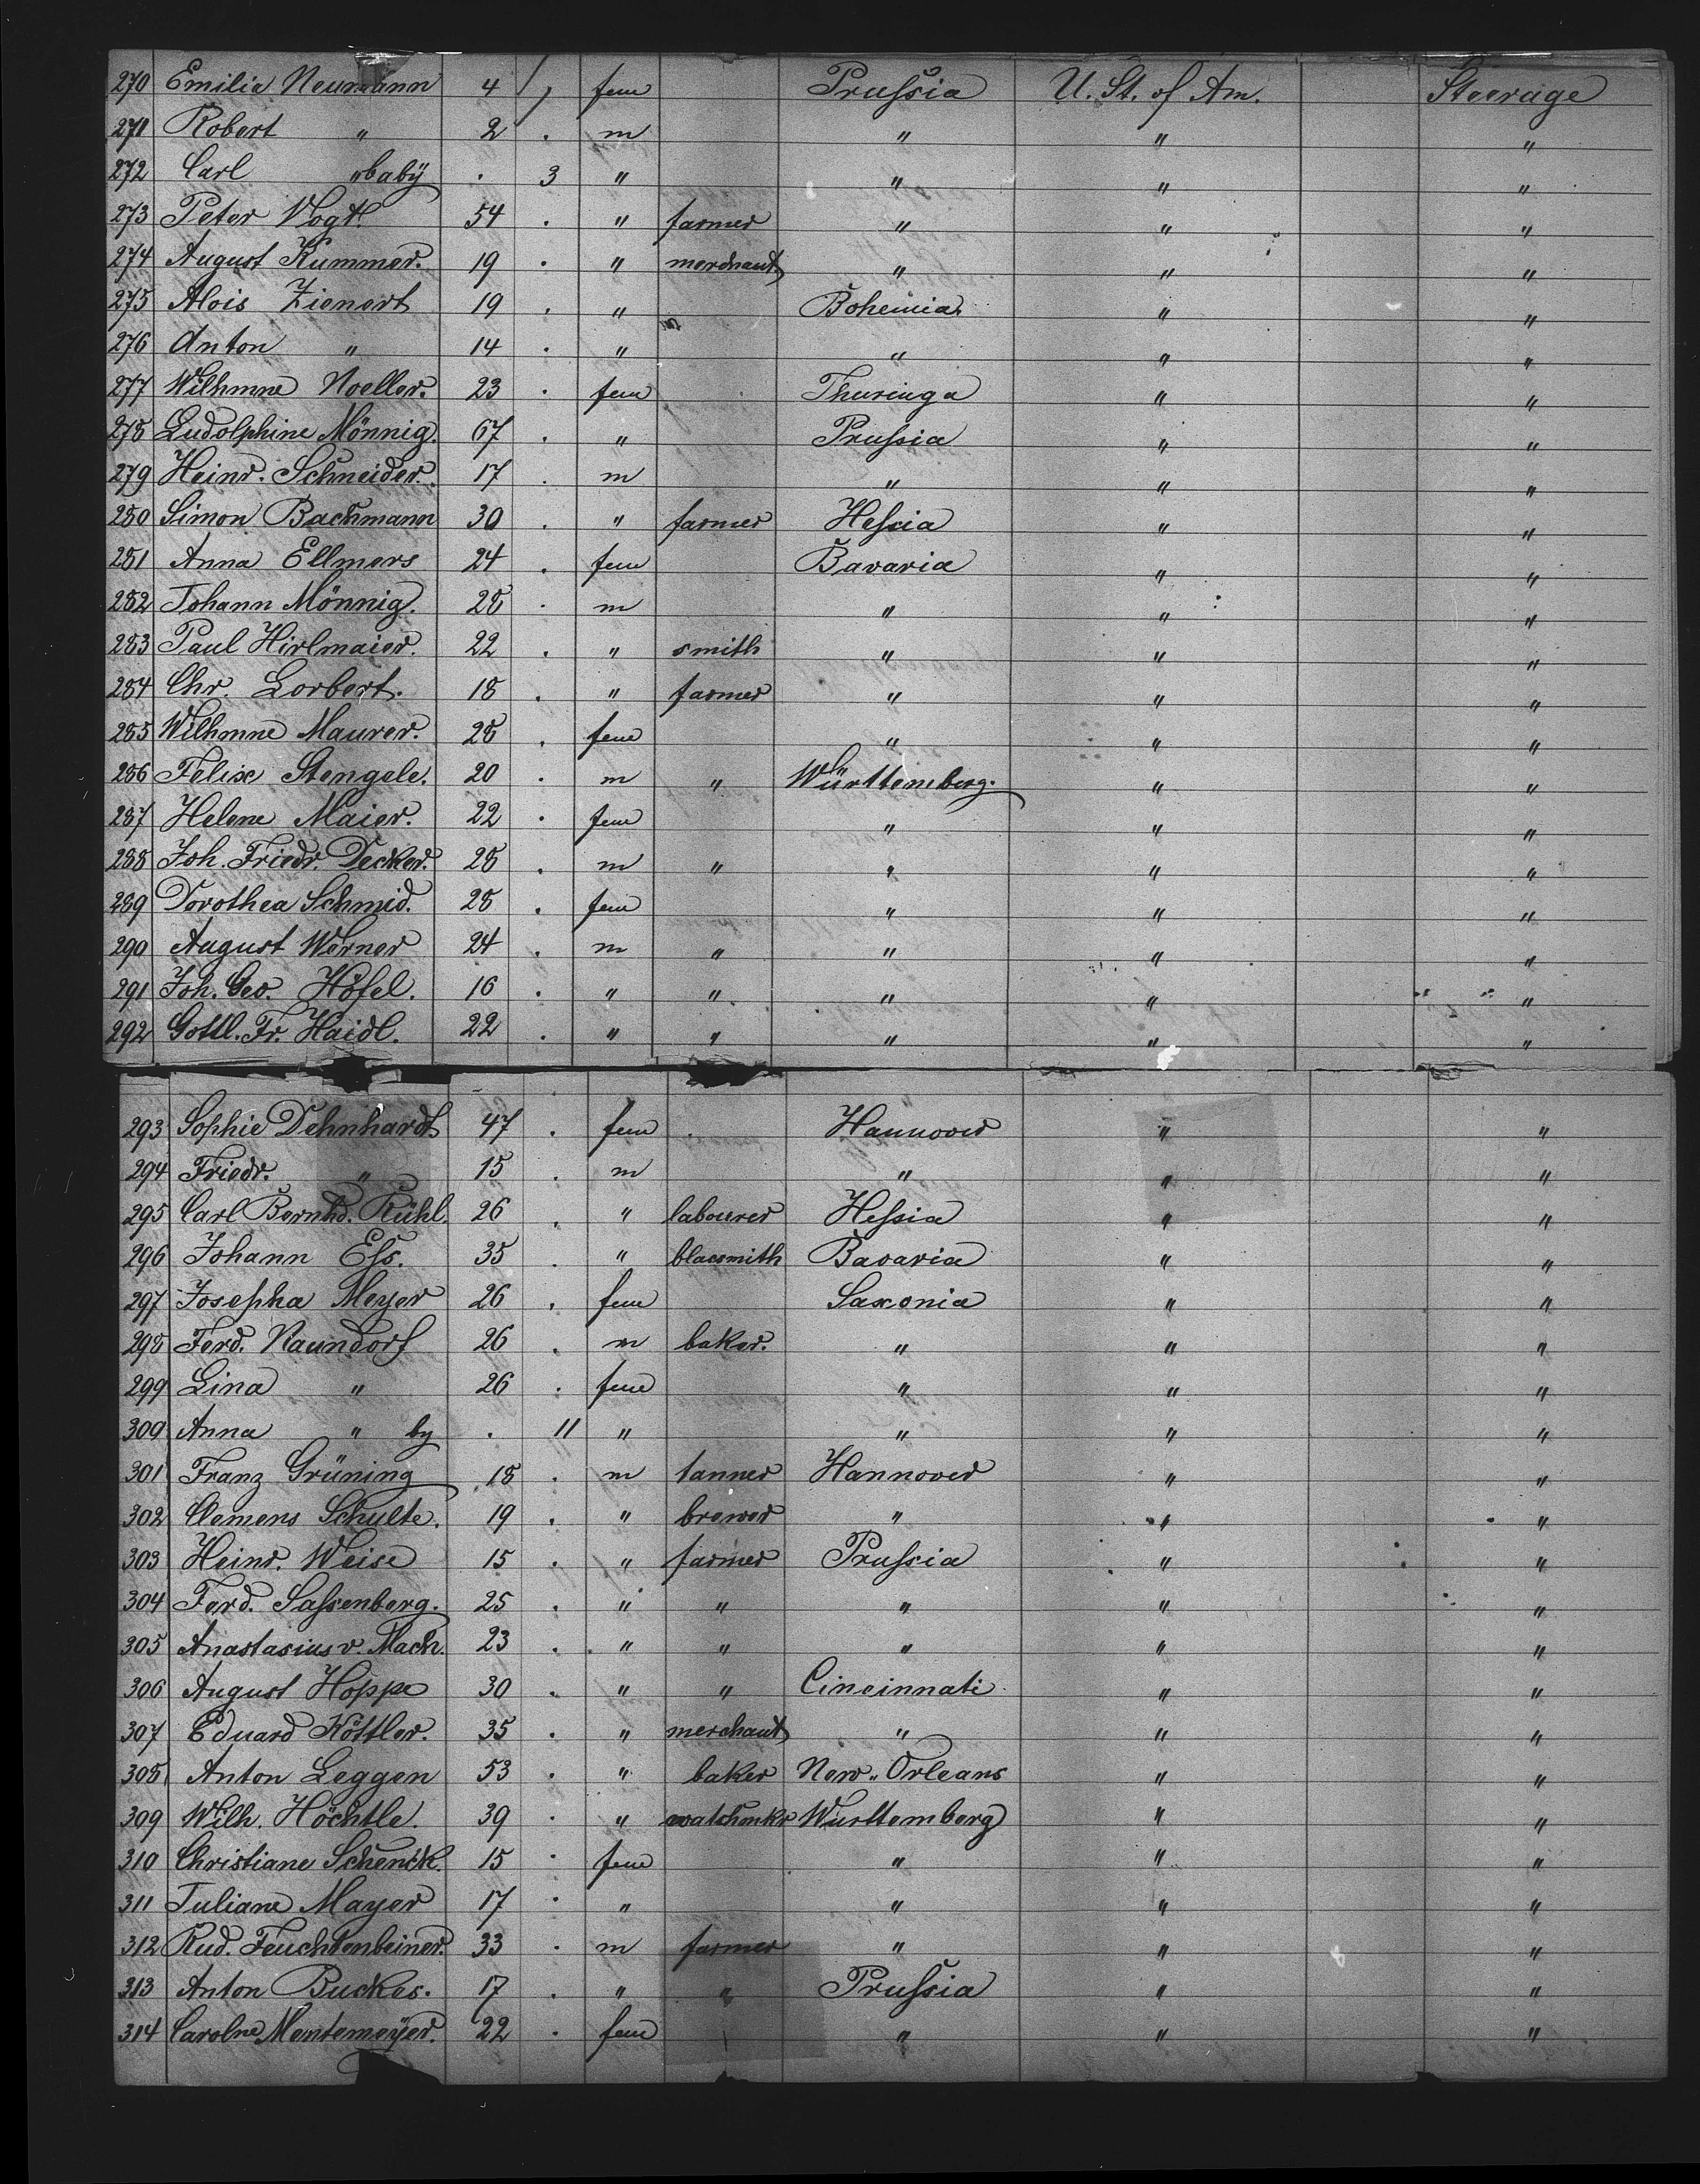 270 Emilie Neumann 4 , fem Prussia U. St. of Am. Steerage
271 Robert " 2 . m " " "
272 Carl " baby . 3 " " " "
273 Peter Vogt. 54 . " farmer " " "
274 August Kummer. 19 . " merchant " " "
275 Alois Zienert 19 . " Bohemia. " "
276 Anton " 14 . " " " "
277 Wilhmne Noeller. 23 . fem Thuringa " "
278 Ludolphine Mönnig. 67 . " Prussia " "
279 Heinr. Schneider. 17 . m " " "
280 Simon Bachmann 30 . " farmer Hessia " "
281 Anna Ellmers 24 . fem Bavaria " "
282 Johann Mönnig. 28 . m " " "
283 Paul Hirlmaier. 22 . " smith " " "
284 Chr. Lorbert. 18 . " farmer " " "
285 Wilhmne Maurer. 28 . fem " " "
286 Felix Stengele. 20 . m " Württemberg. " "
287 Helene Maier. 22 . fem " " "
288 Joh. Friedr. Decker. 28 . m " " " "
289 Dorothea Schmid. 28 . fem " " "
290 August Werner 24 . m " " " "
291 Joh. Geo. Höfel. 16 . " " " " "
292 Gottl. Fr. Haidl. 22 . " " " " "
293 Sophie Dehnhardt 47 . fem Hannover " "
294 Friedr. " 15 . m " " "
295 Carl Bernhd. Rühl. 26 . " labourer Hessia " "
296 Johann Ess. 35 . " blacsmith Bavaria " "
297 Josepha Meyer 26 . fem Saxonia " "
298 Ferd. Naundorf 26 . m baker. " " "
299 Lina " 26 . fem " " "
309 Anna " by . 11 " " " "
301 Franz Grüning 18 . m tanner Hannover " "
302 Clemens Schulte. 19 . " brewer " " "
303 Heinr. Weise 15 . " farmer Prussia " "
304 Ferd. Sassenberg. 25 . " " " " "
305 Anastasius v. Mach. 23 . " " " " "
306 August Hoppe 30 . " " Cincinnati " "
307 Eduard Köttler. 35 . " merchant " " "
308 Anton Leggen 53 . " baker New-Orleans " "
309 Wilh. Höchtle. 39 . " watchmkr Wurttemberg " "
310 Christiane Schenck. 15 . fem " " "
311 Juliane Mayer 17 . " " " "
312 Rud. Feuchtenbeiner. 33 . m farmer " " "
313 Anton Buckes. 17 . " " Prussia " "
314 Carolne Mentemeyer. 22 . fem " " "